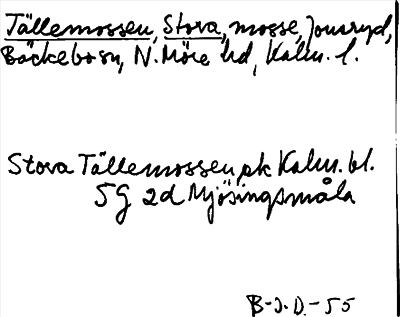 Tällemossen, Stora, mosse, Jonsryd,
Bäckebo sn, N. Möre hd, Kalm. l.
Stora Tällemossen pk Kalm. bl.
5G 2d Mjösingsmåla
B-J.D.-55